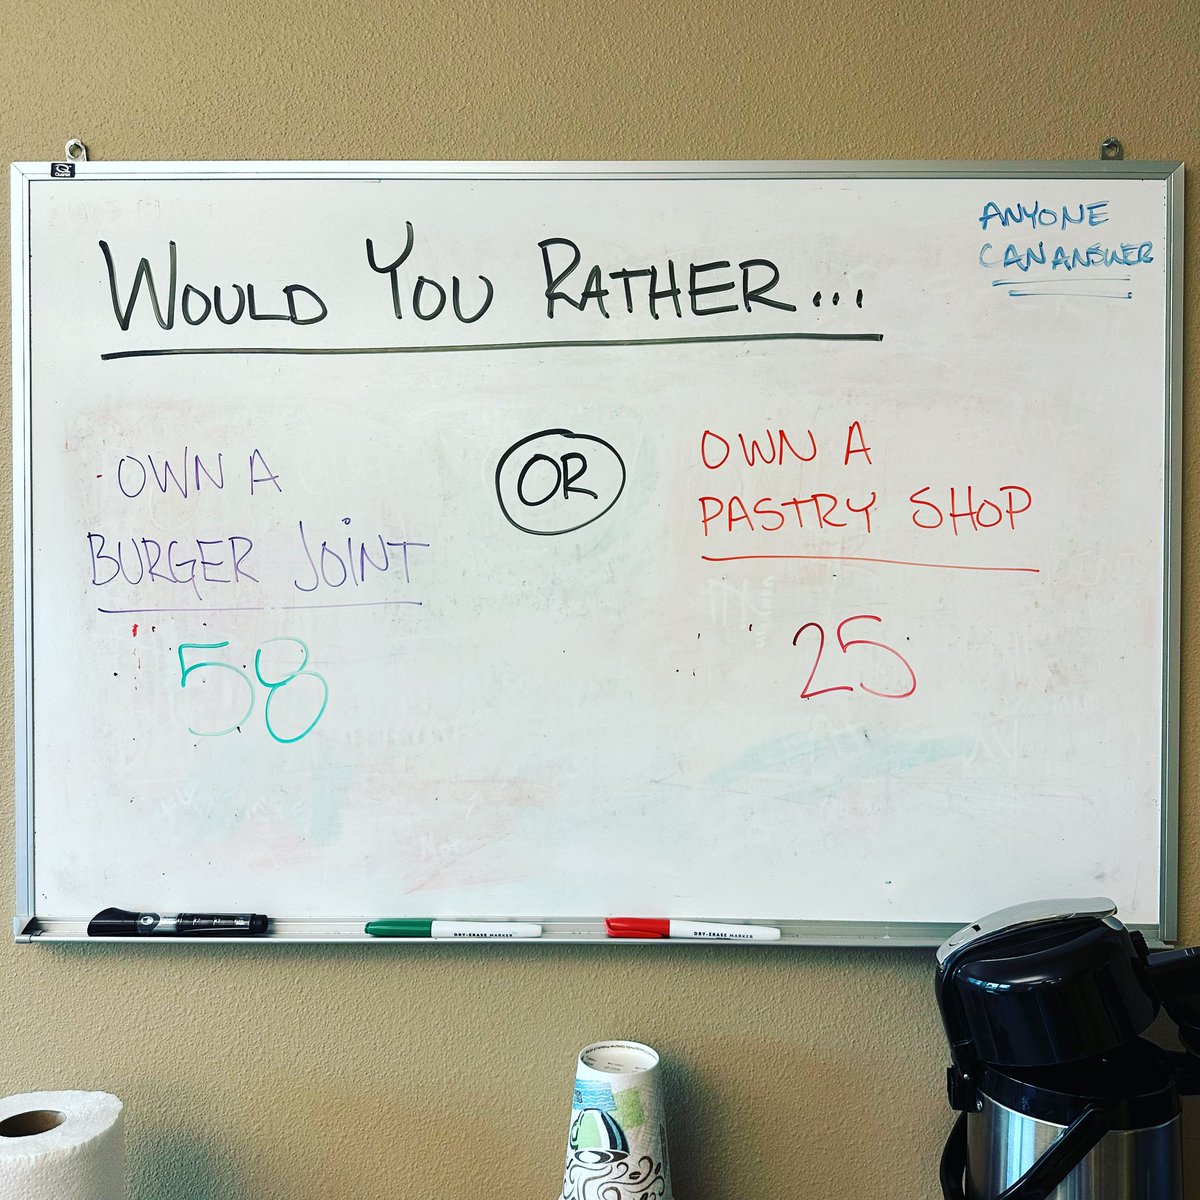 ANYONE
CAN ANSWER
WOULD YOU RATHER...
OWN A
BURGER JOINT
58
OR
OWN A
PASTRY SHOP
25
DRY-ERASE MARKER
DRY-ERASE MARKER